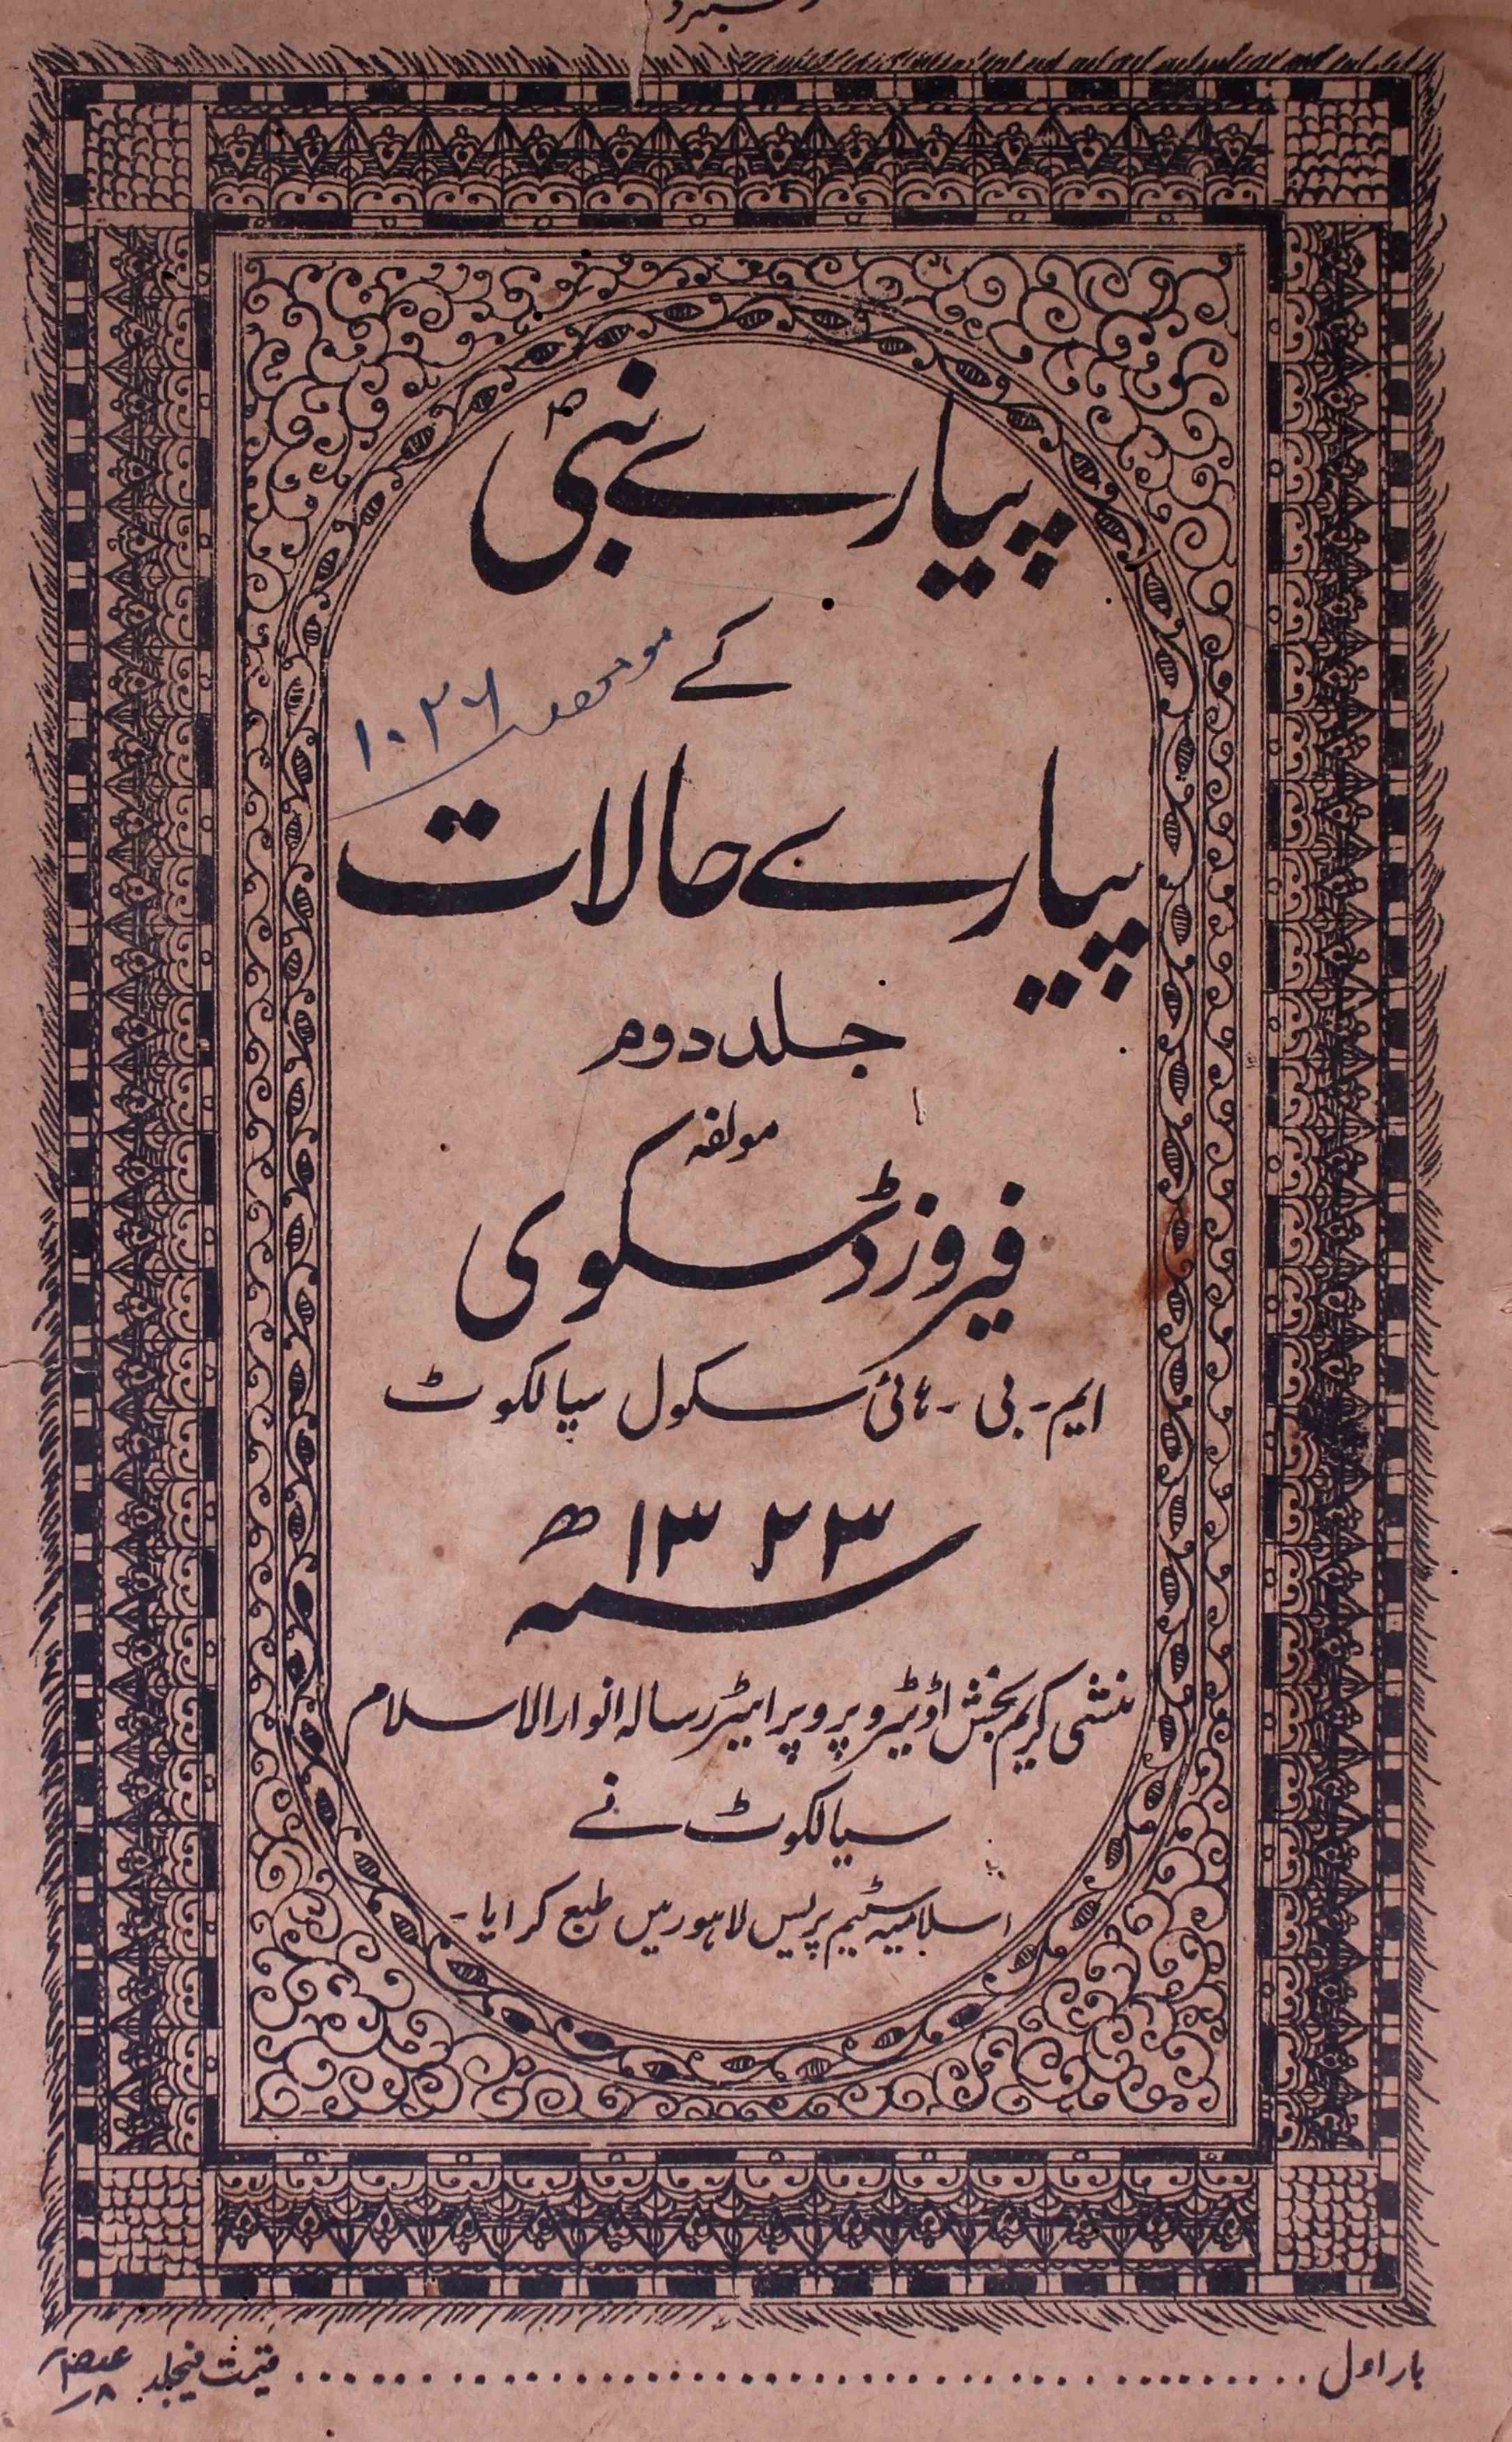 پیارے نبیؐ
کے
۱۰۲۶
پیارے حالات
جلد دوم
مولفہ
فیروز ڈسکوی
ایم - بی - ہائی سکول سیالکوٹ
سنہ ۱۳۲۳ ھ
منشی کریم بخش اڈیٹر و پروپرایٹر رسالہ انوار الاسلام
سیالکوٹ نے
اسلامیہ سٹیم پریس لاہور میں طبع کرایا -
بار اول ........ قیمت فیجلد